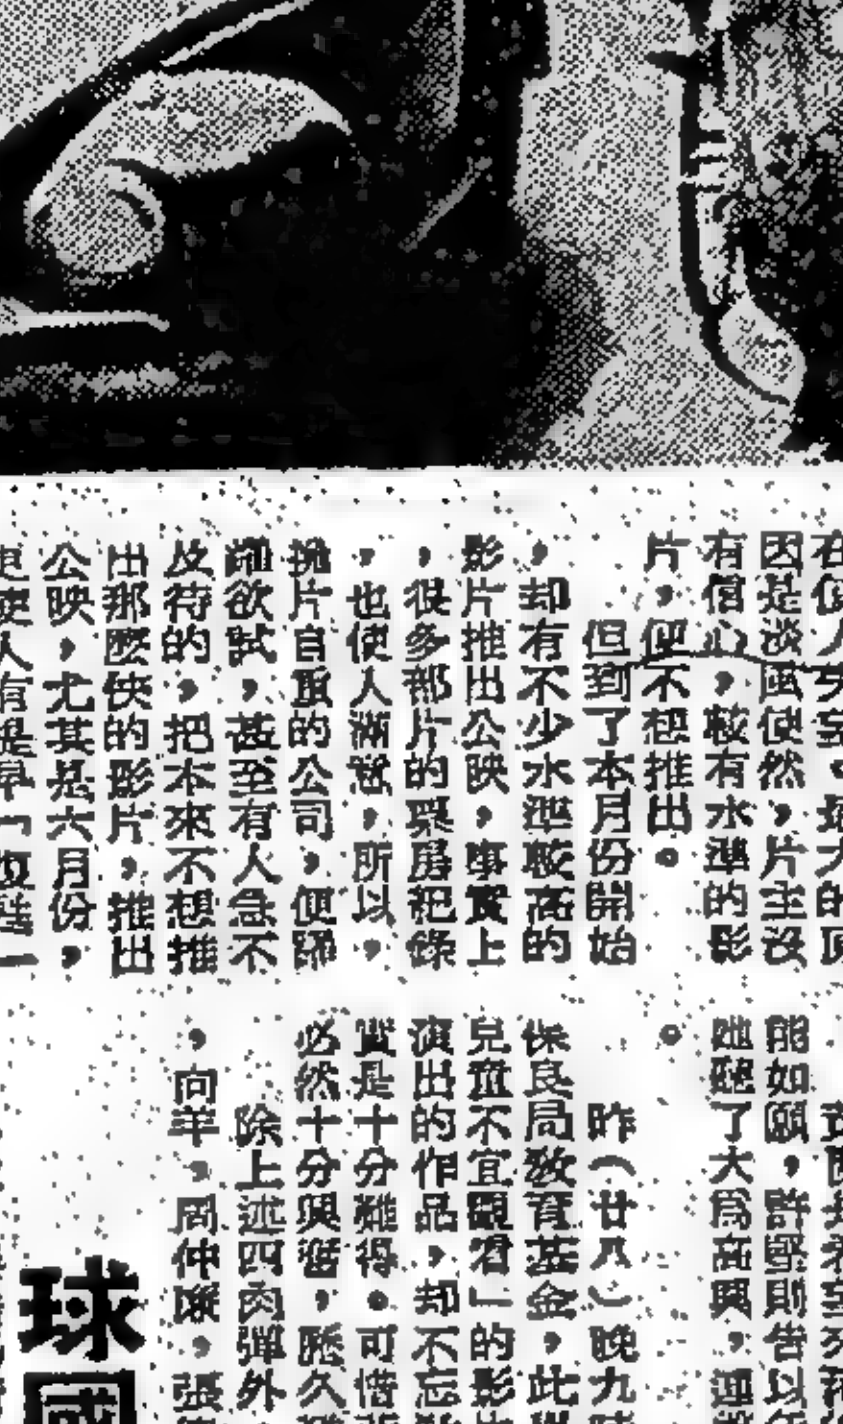 因是淡風使然，片主沒
有信心，較有水準的影
片，便不想推出。
但到了本月份開始
，却有不少水準較高的
影片推出公映，事實上
，很多部片的票房紀錄
，也使人滿意，所以，
擁片自重的公司，便躍
躍欲試，甚至有人急不
及待的，把本來不想推
出那麽快的影片，推出
公映，尤其是六月份，
能如願，許堅則告以
她聽了大爲高興，連
。
昨（廿八）晚九時
保良局教育基金，此
兒童不宜觀看」的影片
演出的作品，却不忘
實是十分難得。可惜
必然十分興奮，歷久
除上述四肉彈外
，向羊，周仲廉，張
球國